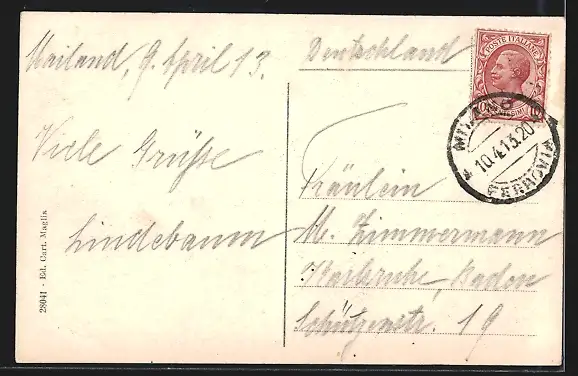 Mailand, 9. April 13.
Viele Grüsse
Lindebaum
28041 - Ed. Cart. Maglia
Deutschland
POSTE ITALIANE
MILANO
10.4.13.20
FERROVIA
Fräulein
M. Zimmermann
Karlsruhe, Baden
Schützenstr. 19